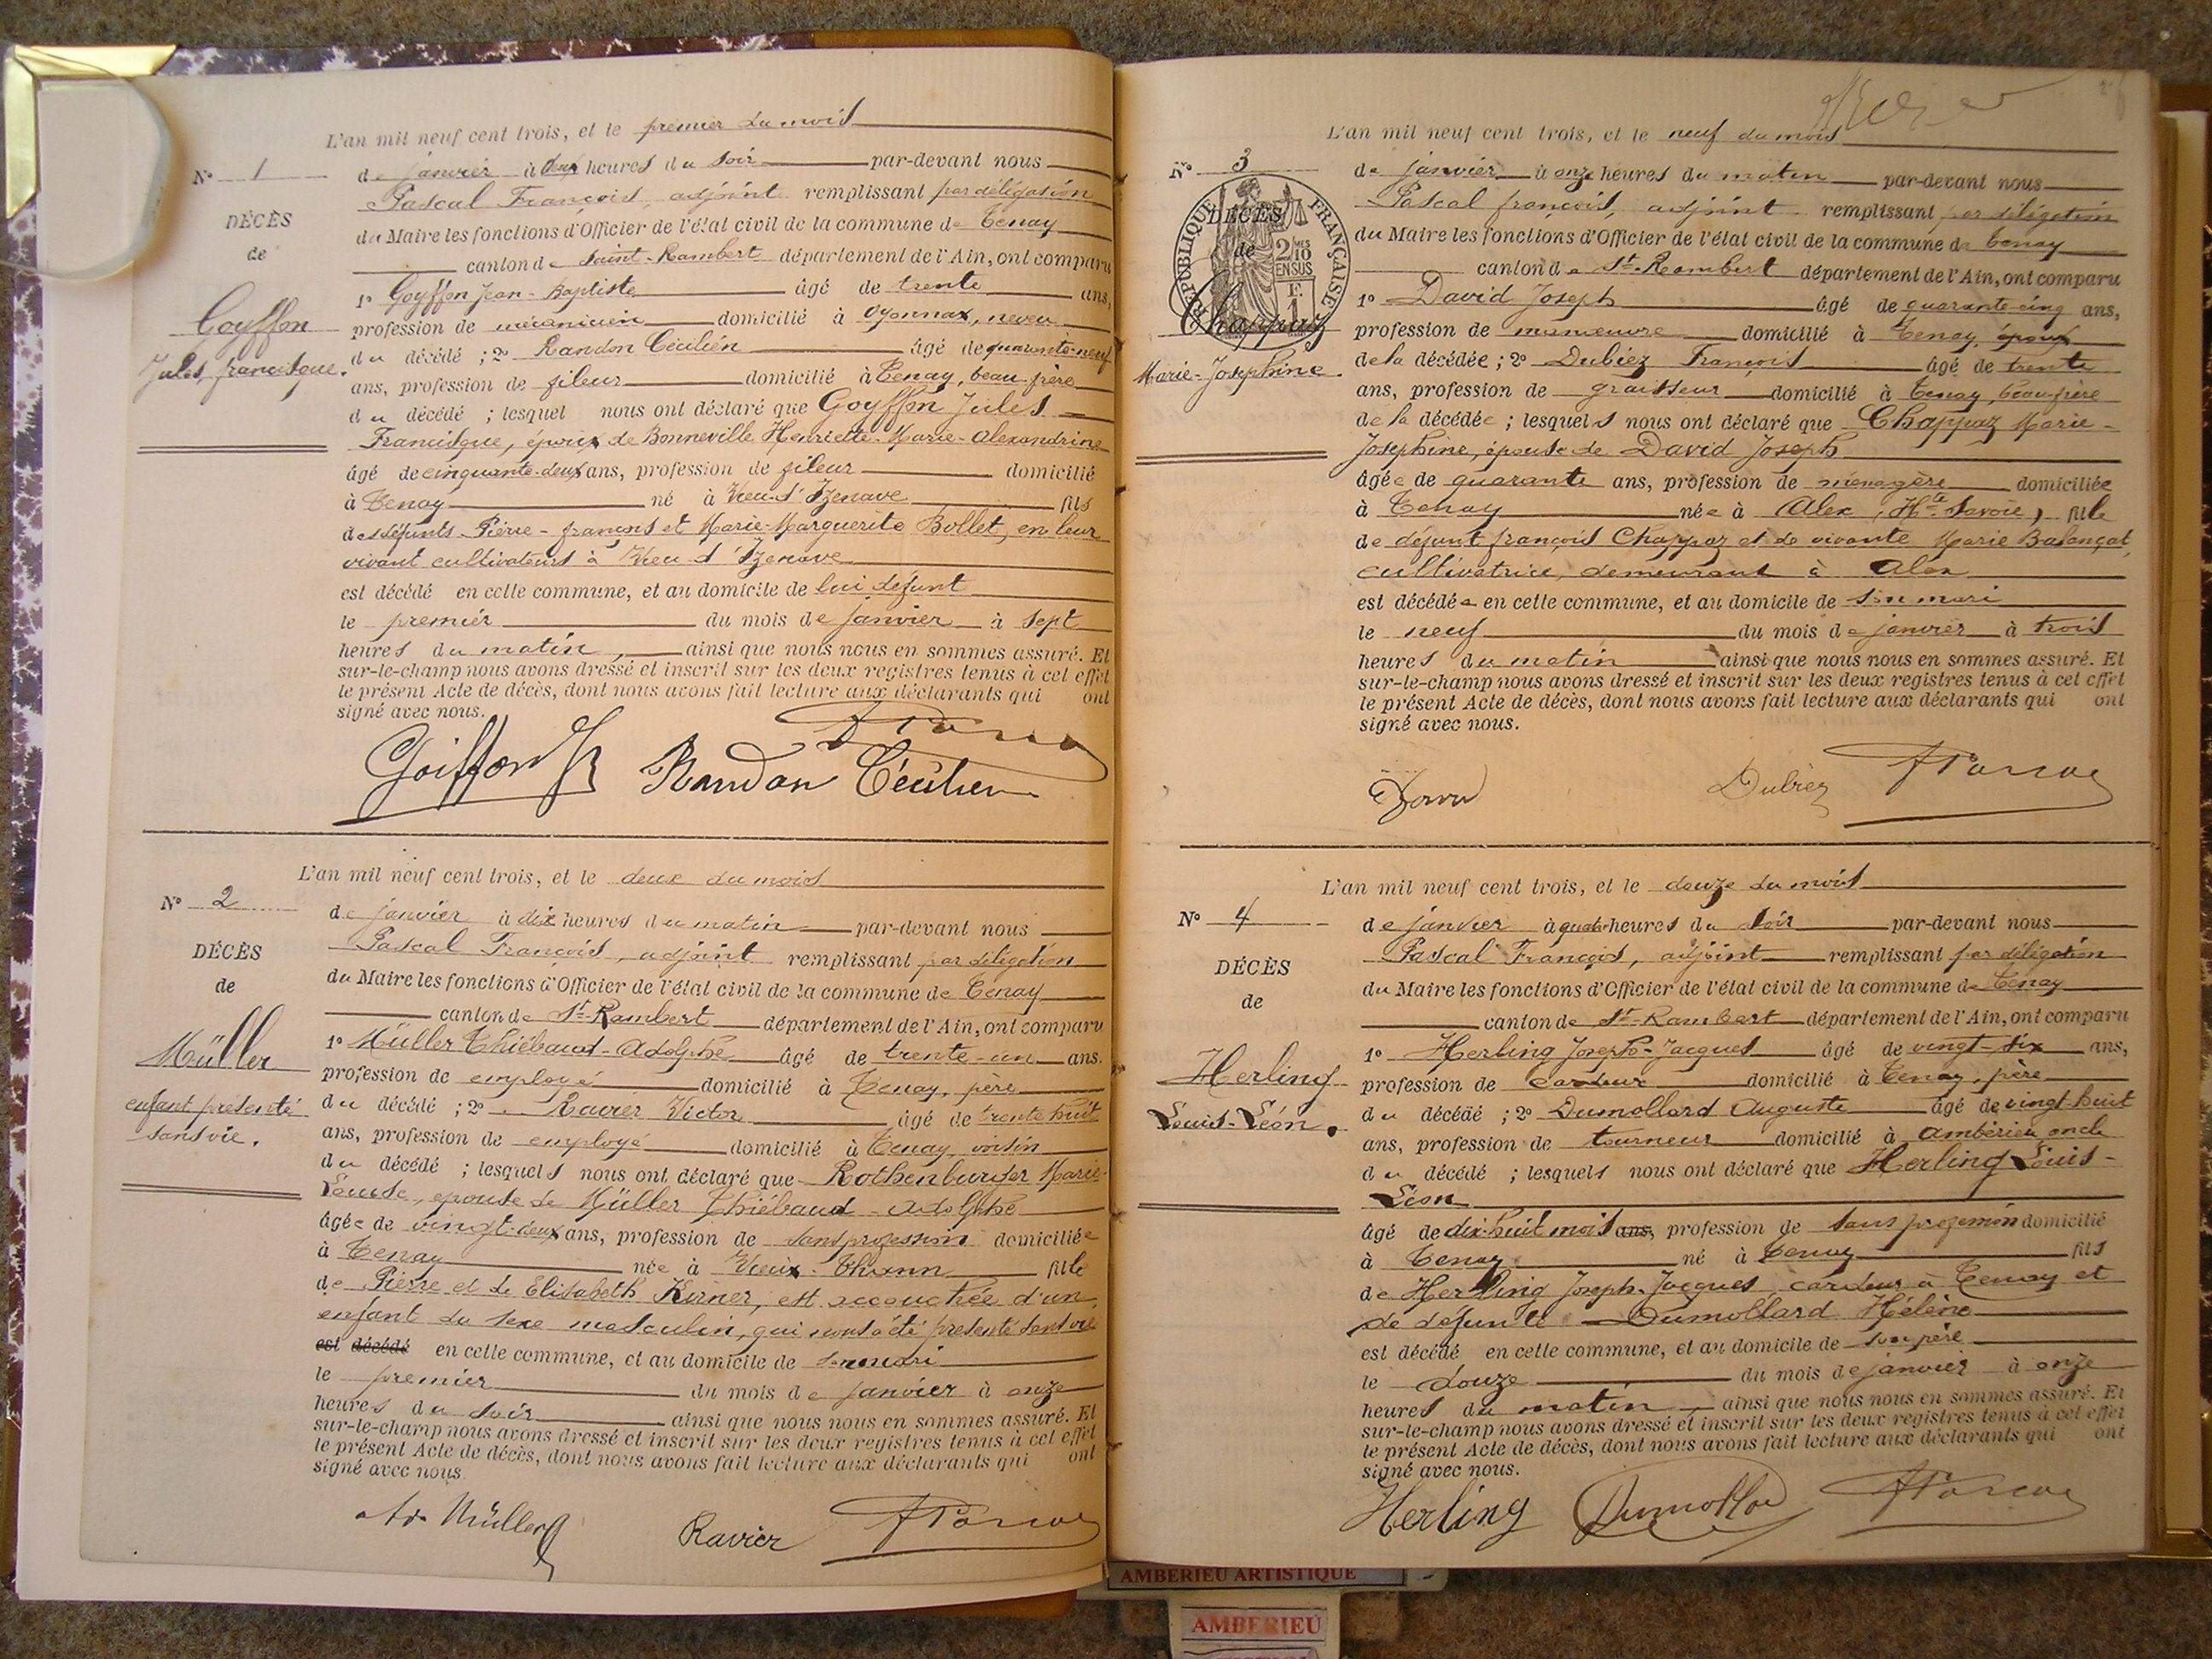 L'an mil neuf cent trois, et le premier du mois
N° 1
de janvier à deux heures du soir par-devant nous
Pascal François, adjoint remplissant par délégation
DÉCÈS
du Maire les fonctions d'Officier de l'état civil de la commune de Tenay
de
canton de Saint-Rambert département de l'Ain, ont comparu
1° Goyffon Jean-Baptiste âgé de trente ans,
Goyffon
profession de mécanicien domicilié à Oyonnax, neveu
Jules, francisque.
du décédé ; 2° Randon Cécilien âgé de quarante-neuf
ans, profession de fileur domicilié à Tenay, beau-frère
du décédé ; lesquel nous ont déclaré que Goyffon Jules
Francisque, époux de Bonneville Henriette-Marie-Alexandrine
âgé de cinquante-deux ans, profession de fileur domicilié
à Tenay né à Vieu-d'Izenave fils
des défunts Pierre-françois et Marie-Marguerite Bollet, en leur
vivant cultivateurs à Vieu-d'Izenave
est décédé en cette commune, et au domicile de lui défunt
le premier du mois de janvier à sept
heures du matin, ainsi que nous nous en sommes assuré. Et
sur-le-champ nous avons dressé et inscrit sur les deux registres tenus à cet effet
le présent Acte de décès, dont nous avons fait lecture aux déclarants qui ont
signé avec nous.
Goiffon Randon Cécilien
L'an mil neuf cent trois, et le deux du mois
N° 2
de janvier à dix heures du matin par-devant nous
Pascal François, adjoint remplissant par délégation
DÉCÈS
du Maire les fonctions d'Officier de l'état civil de la commune de Tenay
de
canton de St-Rambert département de l'Ain, ont comparu
Müller
1° Müller Thiébaud-Adolphe âgé de trente-un ans.
profession de employé domicilié à Tenay, père
enfant présenté
du décédé ; 2° Ravier Victor âgé de trente huit
sans vie.
ans, profession de employé domicilié à Tenay, voisin
du décédé ; lesquels nous ont déclaré que Rothenburger Marie-
Louise, épouse de Müller Thiébaud-Adolphe
âgée de vingt-deux ans, profession de sans profession domiciliée
à Tenay née à Vieux-Thann fille
de Pierre et de Elisabeth Kirner, est accouchée d'un
enfant du sexe masculin, qui nous a été présenté sans vie
est décédé en cette commune, et au domicile de son mari
le premier du mois de janvier à onze
heures du soir ainsi que nous nous en sommes assuré. Et
sur-le-champ nous avons dressé et inscrit sur les deux registres tenus à cet effet
le présent Acte de décès, dont nous avons fait lecture aux déclarants qui ont
signé avec nous.
Ad. Müller Ravier
L'an mil neuf cent trois, et le neuf du mois
N° 3
de janvier à onze heures du matin par-devant nous
Pascal françois, adjoint remplissant par délégation
RÉPUBLIQUE FRANÇAISE
DÉCÈS
du Maire les fonctions d'Officier de l'état civil de la commune de Tenay
de
2/10
EN SUS
canton de St-Rambert département de l'Ain, ont comparu
1° David Joseph âgé de quarante-cinq ans,
Chappaz
profession de manœuvre domicilié à Tenay, époux
Marie-Josephine.
de la décédée ; 2° Dubiez François âgé de trente
ans, profession de graisseur domicilié à Tenay, beau-frère
de la décédée ; lesquels nous ont déclaré que Chappaz Marie-
Josephine, épouse de David Joseph
âgée de quarante ans, profession de ménagère domiciliée
à Tenay née à Alex (Hte Savoie) fille
de défunt françois Chappaz et de vivante Marie Balançat,
cultivatrice, demeurant à Alex
est décédée en cette commune, et au domicile de son mari
le neuf du mois de janvier à trois
heures du matin ainsi que nous nous en sommes assuré. Et
sur-le-champ nous avons dressé et inscrit sur les deux registres tenus à cet effet
le présent Acte de décès, dont nous avons fait lecture aux déclarants qui ont
signé avec nous.
Dubiez
L'an mil neuf cent trois, et le douze du mois
N° 4
de janvier à quatre heures du soir par-devant nous
Pascal François, adjoint remplissant par délégation
DÉCÈS
du Maire les fonctions d'Officier de l'état civil de la commune de Tenay
de
canton de St-Rambert département de l'Ain, ont comparu
1° Herling Joseph-Jacques âgé de vingt-six ans,
Herling
profession de cardeur domicilié à Tenay, père
Louis-Léon.
du décédé ; 2° Dumollard Auguste âgé de vingt-huit
ans, profession de tourneur domicilié à Ambérieu oncle
du décédé ; lesquels nous ont déclaré que Herling Louis-
Léon
âgé de dix-huit mois ans, profession de sans profession domicilié
à Tenay né à Tenay fils
de Herling Joseph-Jacques, cardeur à Tenay et
de défunte Dumollard Hélène
est décédé en cette commune, et au domicile de son père
le douze du mois de janvier à onze
heures du matin, ainsi que nous nous en sommes assuré. Et
sur-le-champ nous avons dressé et inscrit sur les deux registres tenus à cet effet
le présent Acte de décès, dont nous avons fait lecture aux déclarants qui ont
signé avec nous.
Herling
AMBERIEU ARTISTIQUE
AMBERIEU